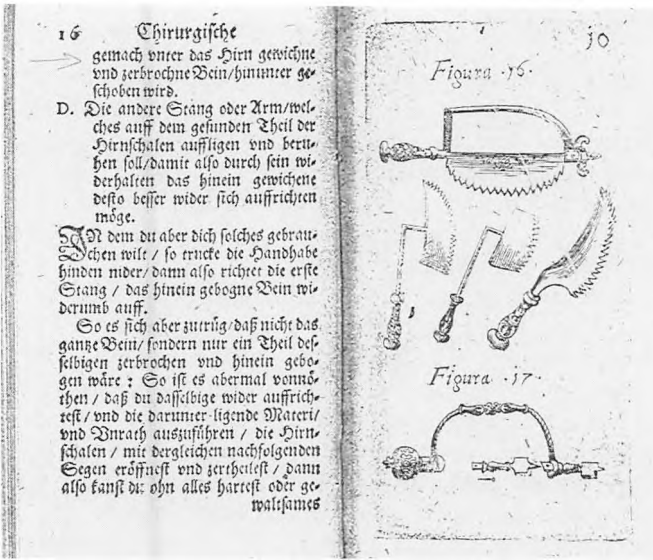 16 Chirurgische
gemach vnter das Hirn gewichne
vnd zerbrochne Bein/hinunter ge-
schoben wird.
D. Die andere Stang oder Arm/wel-
ches auff dem gesunden Theil der
Hirnschalen auffligen vnd beru-
hen soll/damit also durch sein wi-
derhalten das hinein gewichene
desto besser wider sich auffrichten
möge.
IN dem du aber dich solches gebrau-
chen wilt / so trucke die Handhabe
hinden nider/dann also richtet die erste
Stang / das hinein gebogne Bein wi-
derumb auff.
So es sich aber zutrüg/daß nicht das
gantze Bein/sondern nur ein Theil des-
selbigen zerbrochen vnd hinein gebo-
gen wäre : So ist es abermal vonnö-
then / daß du dasselbige wider auffrich-
test / vnd die darunter ligende Materi/
vnd Vnrath auszuführen / die Hirn-
schalen / mit dergleichen nachfolgenden
Segen eröffnest vnd zertheilest / dann
also kanst du ohn alles hartest oder ge-
waltsames
10
Figura .16.
Figura .17.